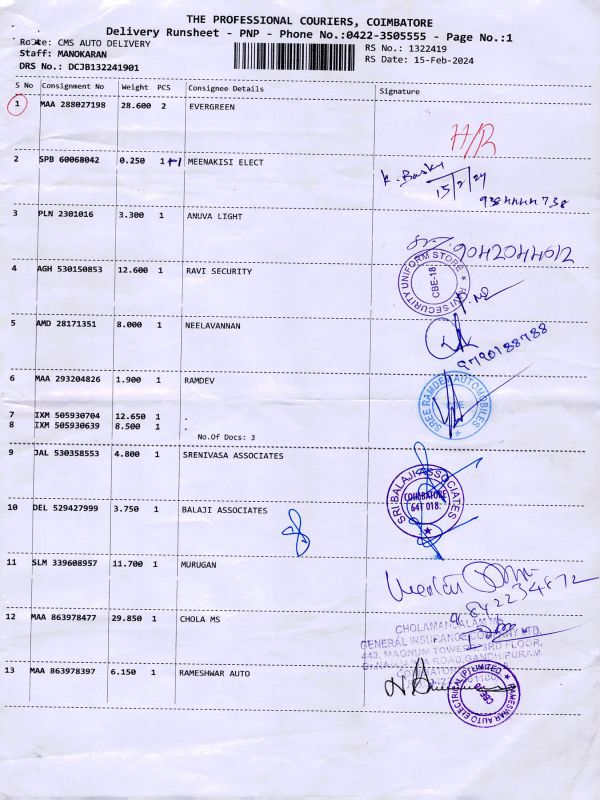 THE PROFESSIONAL COURIERS, COIMBATORE
Delivery Runsheet - PNP - Phone No.:0422-3505555 - Page No.:1
Route: CMS AUTO DELIVERY
RS No.: 1322419
Staff: MANOKARAN
RS Date: 15-Feb-2024
DRS No.: DCJB132241901
S No Consignment No Weight PCS Consignee Details Signature
1 MAA 288027198 28.600 2 EVERGREEN
H/R
2 SPB 60068042 0.250 1 MEENAKISI ELECT
15/2/24
3 PLN 2301016 3.300 1 ANUVA LIGHT
9042044612
4 AGH 530150853 12.600 1 RAVI SECURITY
SECURITY UNIFORM STORE
CBE-18
5 AMD 28171351 8.000 1 NEELAVANNAN
9790188788
6 MAA 293204826 1.900 1 RAMDEV
SREE RAMDEV AUTOMOBILES
CBE
7 IXM 505930704 12.650 1
8 IXM 505930639 8.500 1
No.Of Docs: 3
9 JAL 530358553 4.800 1 SRENIVASA ASSOCIATES
10 DEL 529427999 3.750 1 BALAJI ASSOCIATES
SRI BALAJI ASSOCIATES
COIMBATORE
641 018.
11 SLM 339608957 11.700 1 MURUGAN
9842234872
12 MAA 863978477 29.850 1 CHOLA MS
CHOLAMANDALAM MS
GENERAL INSURANCE COMPANY LTD.
443, MAGNUM TOWER, 3RD FLOOR,
ROAD, GANDHIPURAM
13 MAA 863978397 6.150 1 RAMESHWAR AUTO
RAMESWAR AUTO ELECTRICAL (P) LIMITED